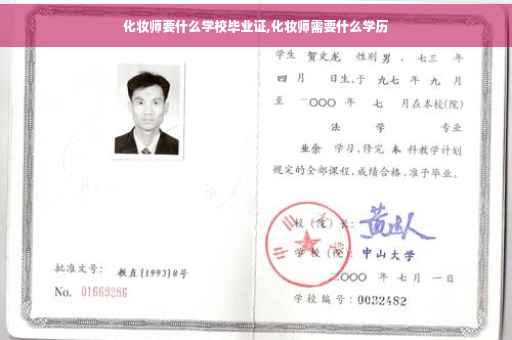 化妆师要什么学校毕业证,化妆师需要什么学历
学生 贺文龙 性别 男 、七三 年
四 月 日生,于 九七 年 九 月
至 二〇〇〇 年 七 月在本校(院)
法 学 专业
业余 学习,修完 本 科教学计划
规定的全部课程,成绩合格,准予毕业。
校(院)长:
学校(院): 中山大学
二〇〇〇 年 七 月 一 日
学校编号: 0032482
批准文号: 教直[1993]8号
No. 01669286